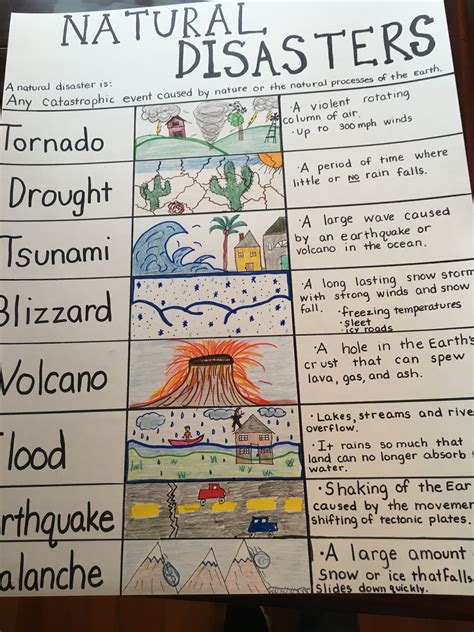 NATURAL
DISASTERS
A natural disaster is:
Any catastrophic event caused by nature or the natural processes of the Earth.
Tornado
· A violent rotating
column of air.
· Up to 300 mph winds
Drought
· A period of time where
little or no rain falls.
Tsunami
· A large wave caused
by an earthquake or
volcano in the ocean.
Blizzard
· A long lasting snow storm
with strong winds and snow
fall.
· freezing temperatures
· sleet
· icy roads
Volcano
· A hole in the Earth's
crust that can spew
lava, gas, and ash.
lood
· Lakes, streams and rive
overflow.
· It rains so much that
land can no longer absorb
water.
rthquake
· Shaking of the Ear
caused by the movemen
shifting of tectonic plates.
alanche
· A large amount
Snow or ice that falls
slides down quickly.